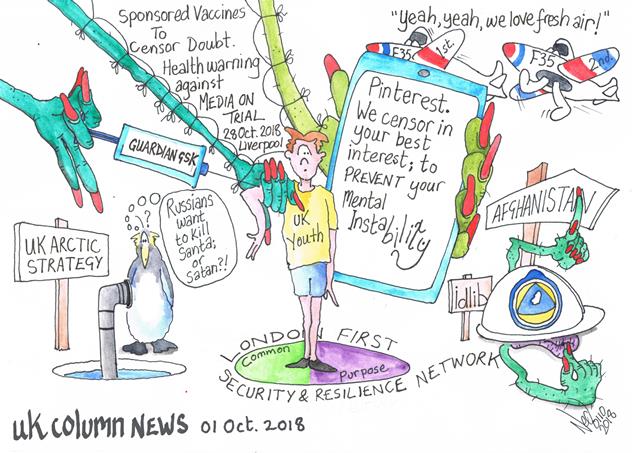 Sponsored Vaccines
To
Censor Doubt.
Health warning
against
MEDIA ON
TRIAL
28 Oct. 2018
Liverpool
"Yeah, yeah, we love fresh air!"
F35
1st.
F35
2nd.
GUARDIAN GSK
Pinterest.
We censor in
your best
interest; to
PREVENT your
Mental
Instability
UK
Youth
UK ARCTIC
STRATEGY
? ?
Russians
want
to kill
Santa;
or
Satan?!
AFGHANISTAN
idlib
LONDON FIRST
Common
Purpose
SECURITY & RESILIENCE NETWORK
UK COLUMN NEWS 01 Oct. 2018
2018